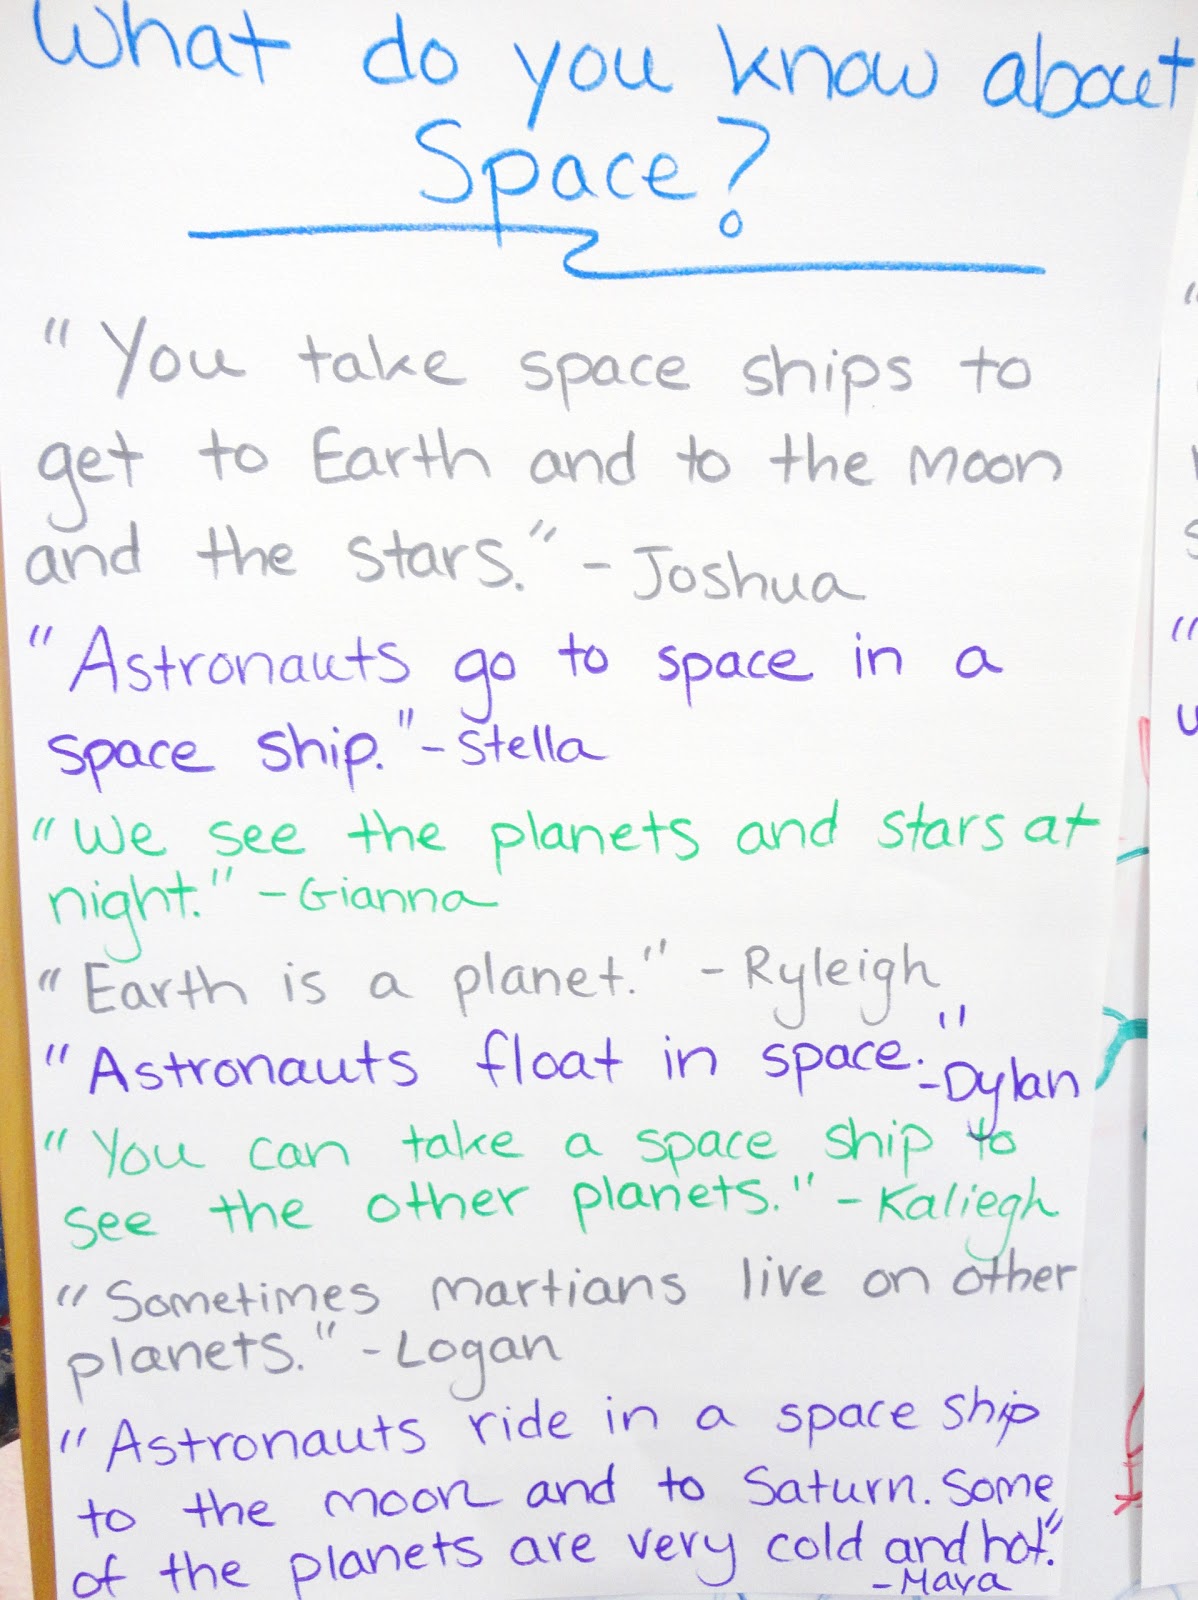 What do you know about
Space?
"You take space ships to
get to Earth and to the moon
and the stars." - Joshua
"Astronauts go to space in a
space ship." - Stella
"We see the planets and stars at
night." - Gianna
"Earth is a planet." - Ryleigh
"Astronauts float in space." - Dylan
"You can take a space ship to
see the other planets." - Kaliegh
"Sometimes martians live on other
planets." - Logan
"Astronauts ride in a space ship
to the moon and to Saturn. Some
of the planets are very cold and hot."
- Maya